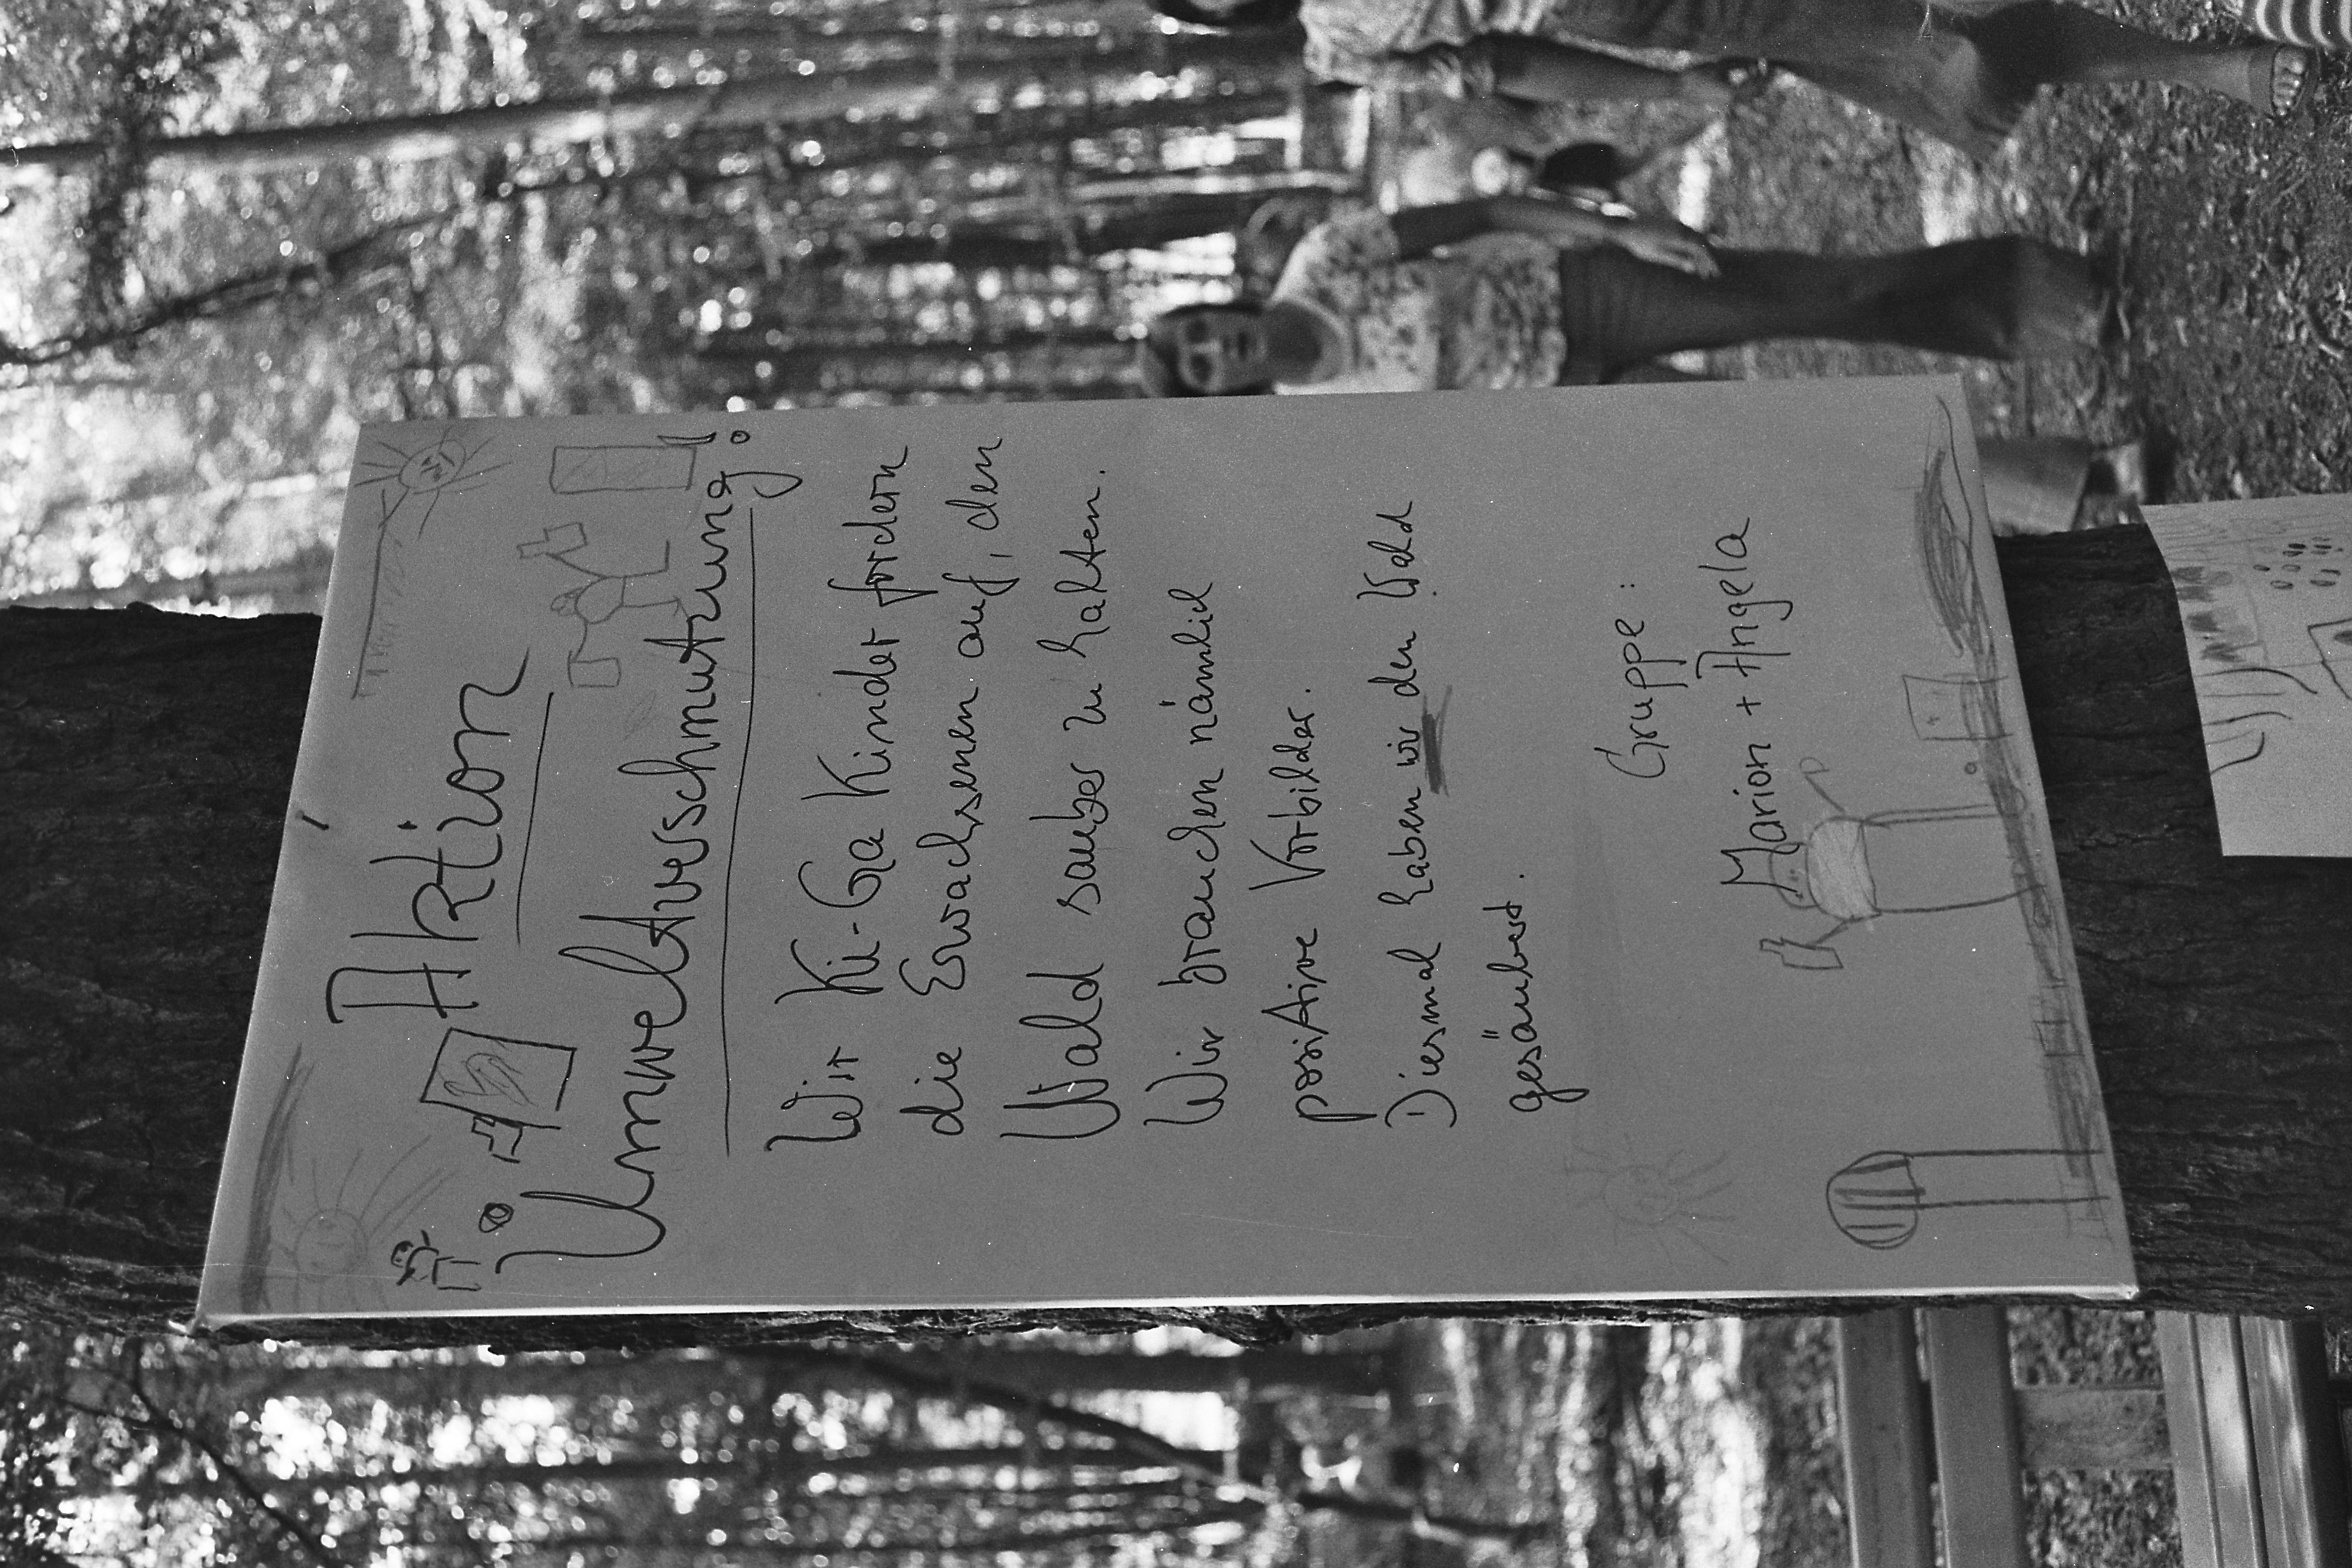 Aktion
Umweltverschmutzung!
Wir Ki-Ga Kinder fordern
die Erwachsenen auf, den
Wald sauber zu halten.
Wir brauchen nämlich
positive Vorbilder.
Diesmal haben wir den Wald
gesäubert.
Gruppe:
Marion + Angela